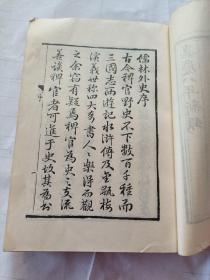 儒林外史序
古今稗官野史不下數百千種而
三國志西遊記水滸傳及金瓶梅
演義世稱四大奇書人〻樂得而觀
之余竊有疑焉稗官為史之支流
善讀稗官者可進于史故其為書